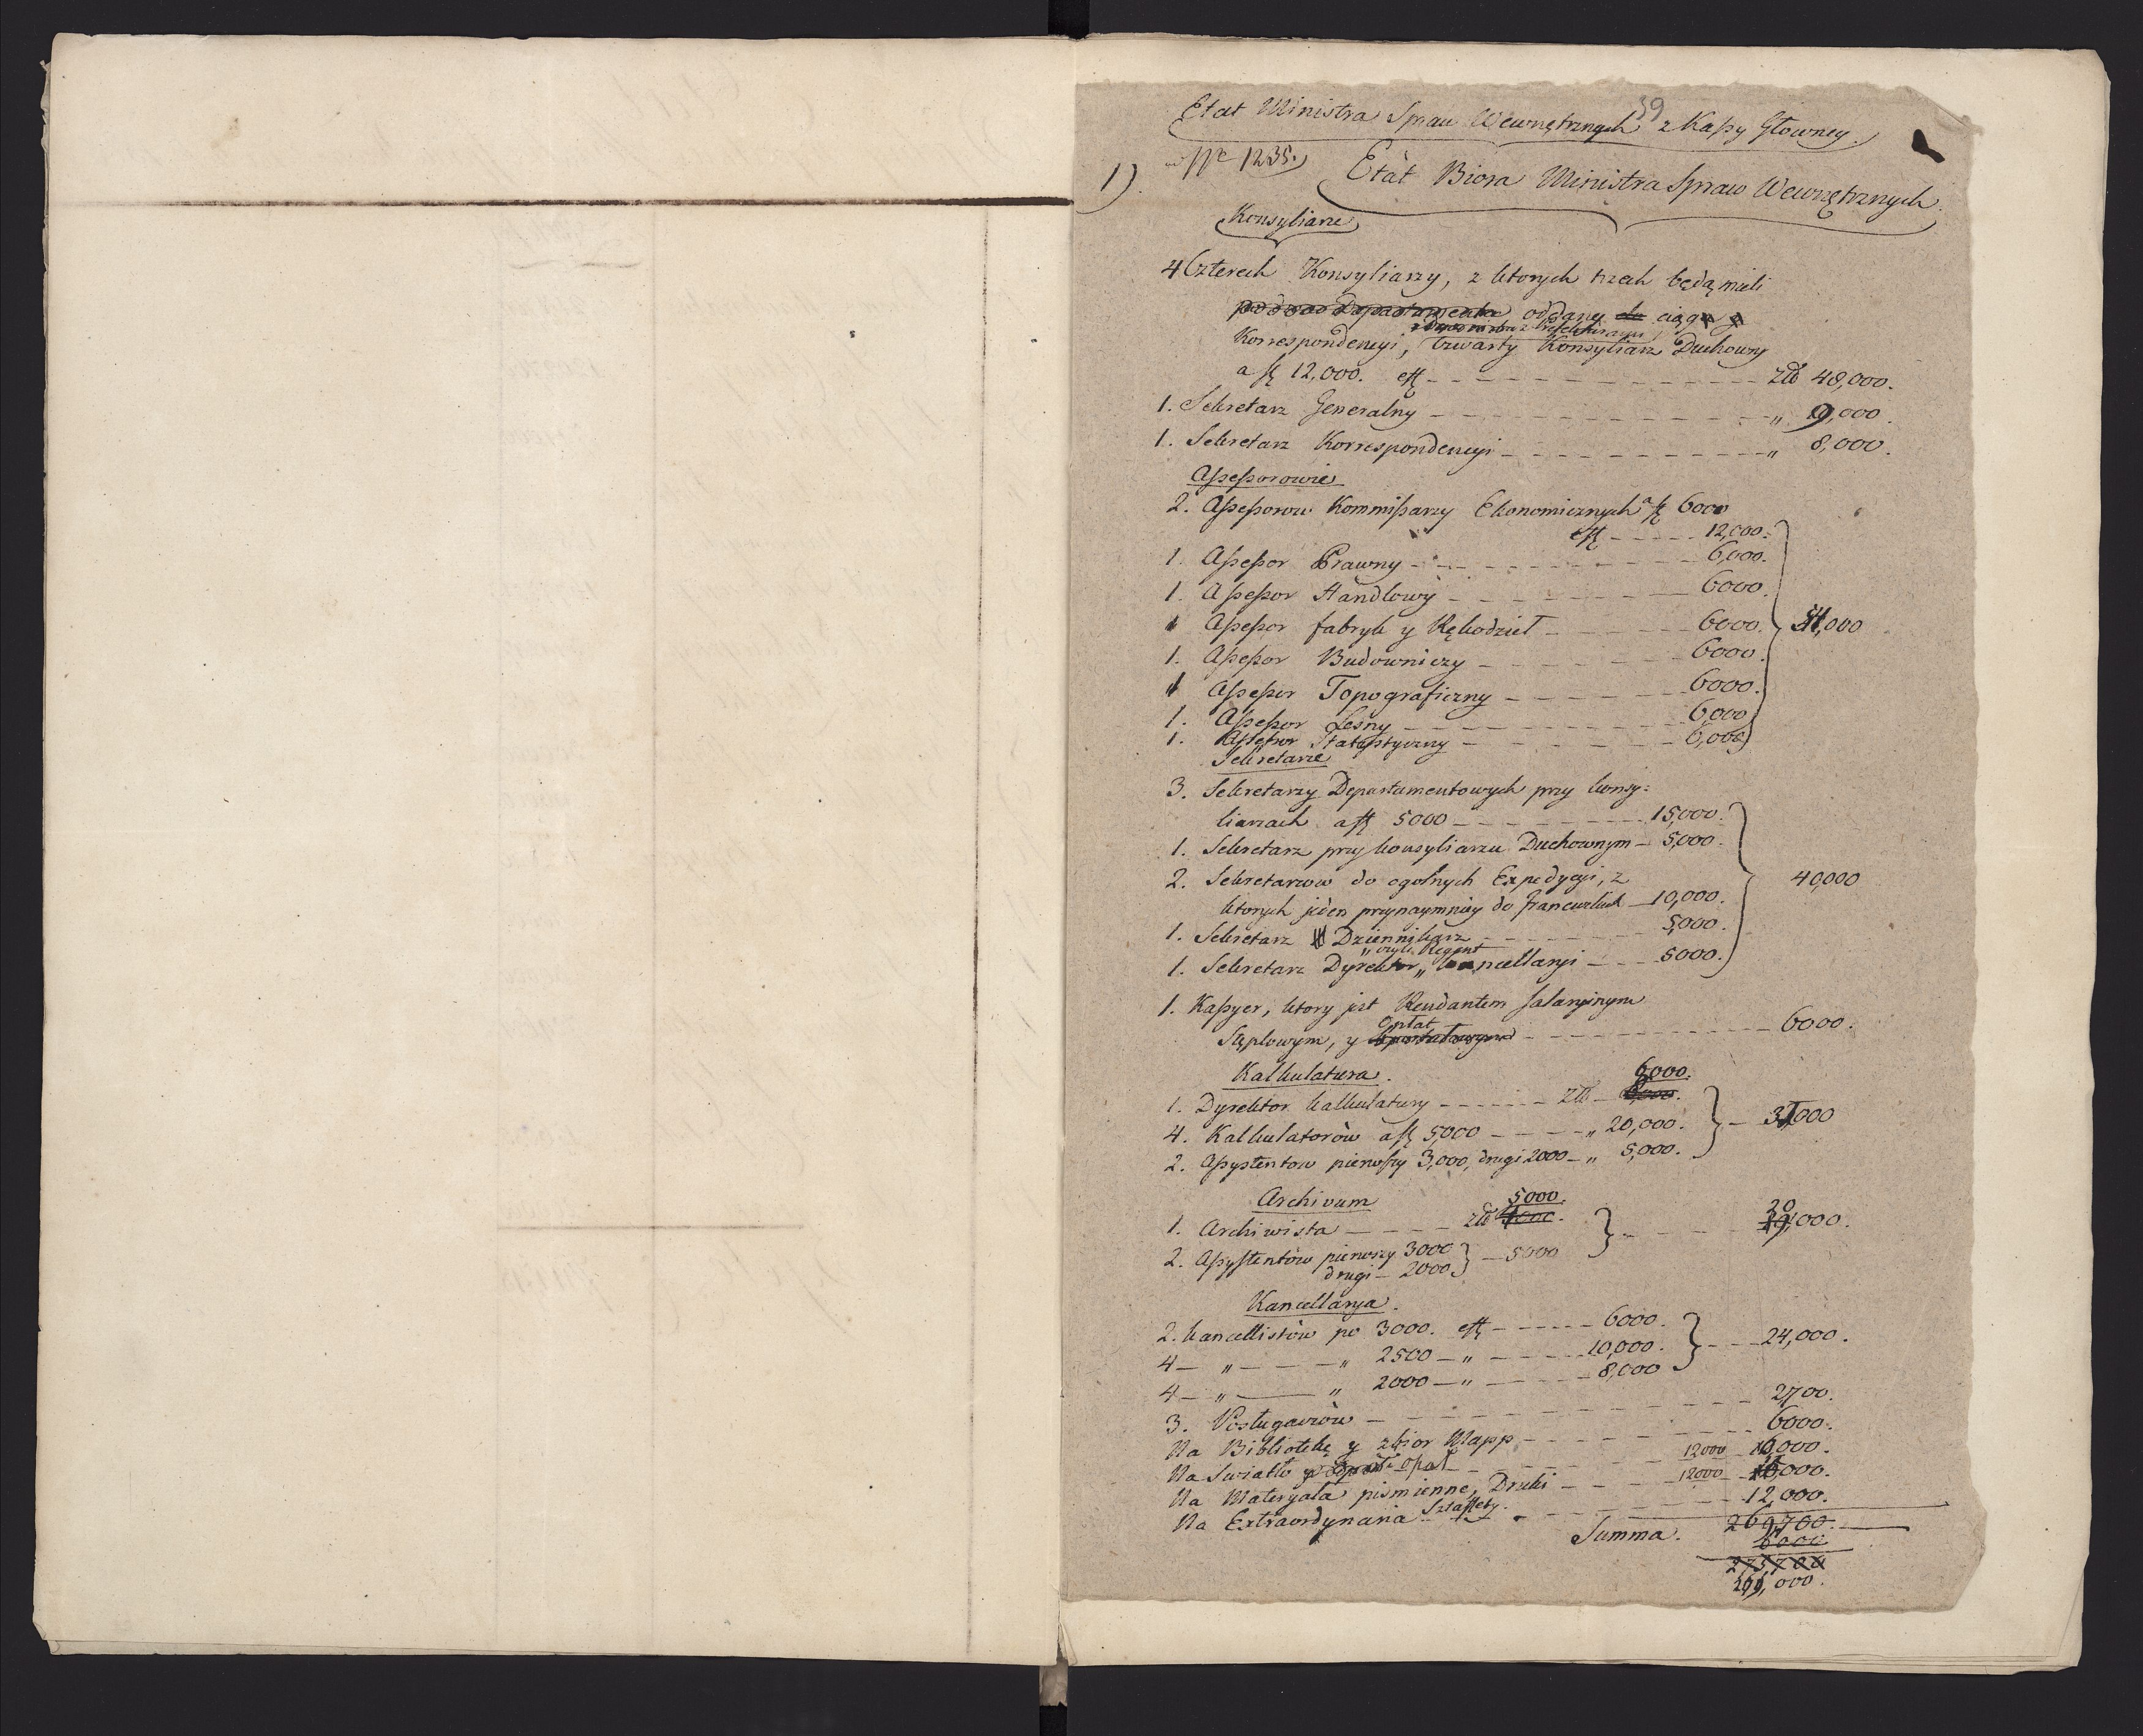 39
Etat Ministra Spraw Wewnętrznych z Kaßy Głowney.
1) Nr 1235. Etàt Biora Ministra Spraw Wewnętrznych.
Konsyliarze
4 Czterech Konsyliarzy, z ktorych trzech będą mieli
oddany ciąg
z Prefekturami
Korrespondencyi, Czwarty Konsyliarz Duchowny
a fl 12,000. efl — Zll 48,000.
1. Sekretarz Generalny — „ 9,000.
1. Sekretarz Korrespondencyi — „ 8,000.
Aßeßorowie
2. Aßeßorow Kommißarzy Ekonomicznych a fl 6000
efl — 12,000.
1. Aßeßor Prawny — 6,000.
1. Aßeßor Handlowy — 6000.
1 Aßeßor fabryk y Rękodzieł — 6000. 54,000
1. Aßeßor Budowniczy — 6000.
1 Aßeßor Topograficzny — 6000.
1. Aßeßor Leśny — 6,000
1. Aßeßor Statystyczny — 6,000
Sekretarze
3. Sekretarzy Departamentowych przy konsy:
liarzach a fl 5000 — 15,000.
1. Sekretarz przy konsyliarzu Duchownym — 5,000.
2. Sekretarzow do ogolnych Expedycyi, z 40,000
ktorych jeden przynaymniey do francuzkich — 10,000.
1. Sekretarz Dziennikarz — 5,000.
„ czyli Regent
1. Sekretarz Dyrektor „ kancellaryi — 5000.
1. Kaßyer, ktory jest Rendantem Salaryinym
Opłat
Stęplowym, y — 6000.
Kalkulatura. 6000.
1. Dyrektor kalkulatury — Zll
4. Kalkulatorów a fl 5,000 — „ 20,000. — 31,000
2. Aßystentow pierwszy 3,000, drugi 2000 — „ 5,000.
Archivum 5000.
1. Archiwista — Zll 4000. 20
19,000.
2. Aßystentów pierwszy 3000 — 5000
drugi — 2000
Kancellarya.
2. kancellistów po 3000. efl — 6000.
4 — „ — „ 2500 — „ — 10,000. — 24,000.
4 — „ — „ 2000 — „ — 8,000
3. Posługaczów — 2700.
Na Bibliotekę y zbior Mapp — 6000.
Na Swiatło y opał — 12000
Na Materyała pismienne, Druki — 12000
Na Extraordynaria Sztaffety. — 12,000.
Summa. 269,700.
6000
275,700